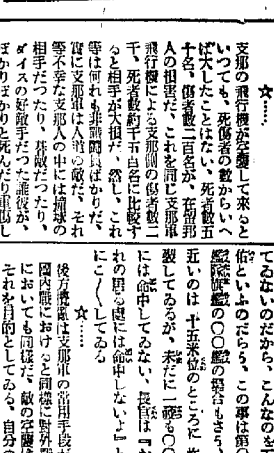 ☆……
支那の飛行機が空襲して來ると
いつても、死傷者の數からいへ
ば大したことはない、死者數五
十名、傷者數二百名が、在留邦
人の損害だ、これを同じ支那軍
飛行機による支那側の傷者數二
千、死者數約千五百名に比較す
ると相手が大損だ、然し、これ
等は何れも非戰鬪員ばかりだ、
實に支那軍は人道の敵だ、それ
等不幸な支那人の中には撞球の
相手だつたり、碁敵だつたり、
ダイスの好敵手だつた誰彼が、
ぽかりぽかりと死んだり重傷し
てゐないのだから、こんなのを
佑といふのだらう、この事は第〇
艦隊旗艦の〇〇艦の場合もさう、
近いのは十五米位のところに
裂してゐるが、未だに一發も〇〇
には命中してゐない、長官は『
れの居る處には命中しないよ』と
にこ〳〵してゐる
☆……
後方攪亂は支那軍の常用手段だ
國内戰におけると同樣に對外戰
においても同樣だ、敵の空襲
それを目的としてゐる、自分の